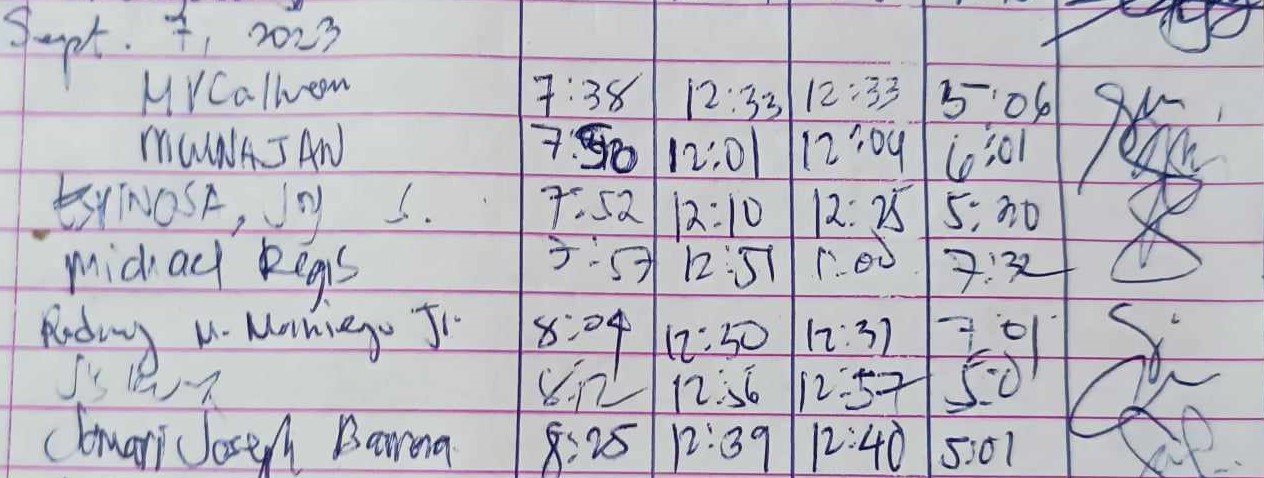 Sept. 7, 2023
MVCalhoon 7:38 12:33 12:33 5:06
MUUNAJAN 12:01 12:04 6:01
ESPINOSA, Joy S. 7:52 12:10 12:25 5:20
Michael Regis 7:57 12:51 1:00 7:32
Rodney M. Maniego Jr. 8:04 12:30 12:37 7:01
8:12 12:56 12:57 5:01
Jomari Joseph Barrera 8:25 12:39 12:40 5:01